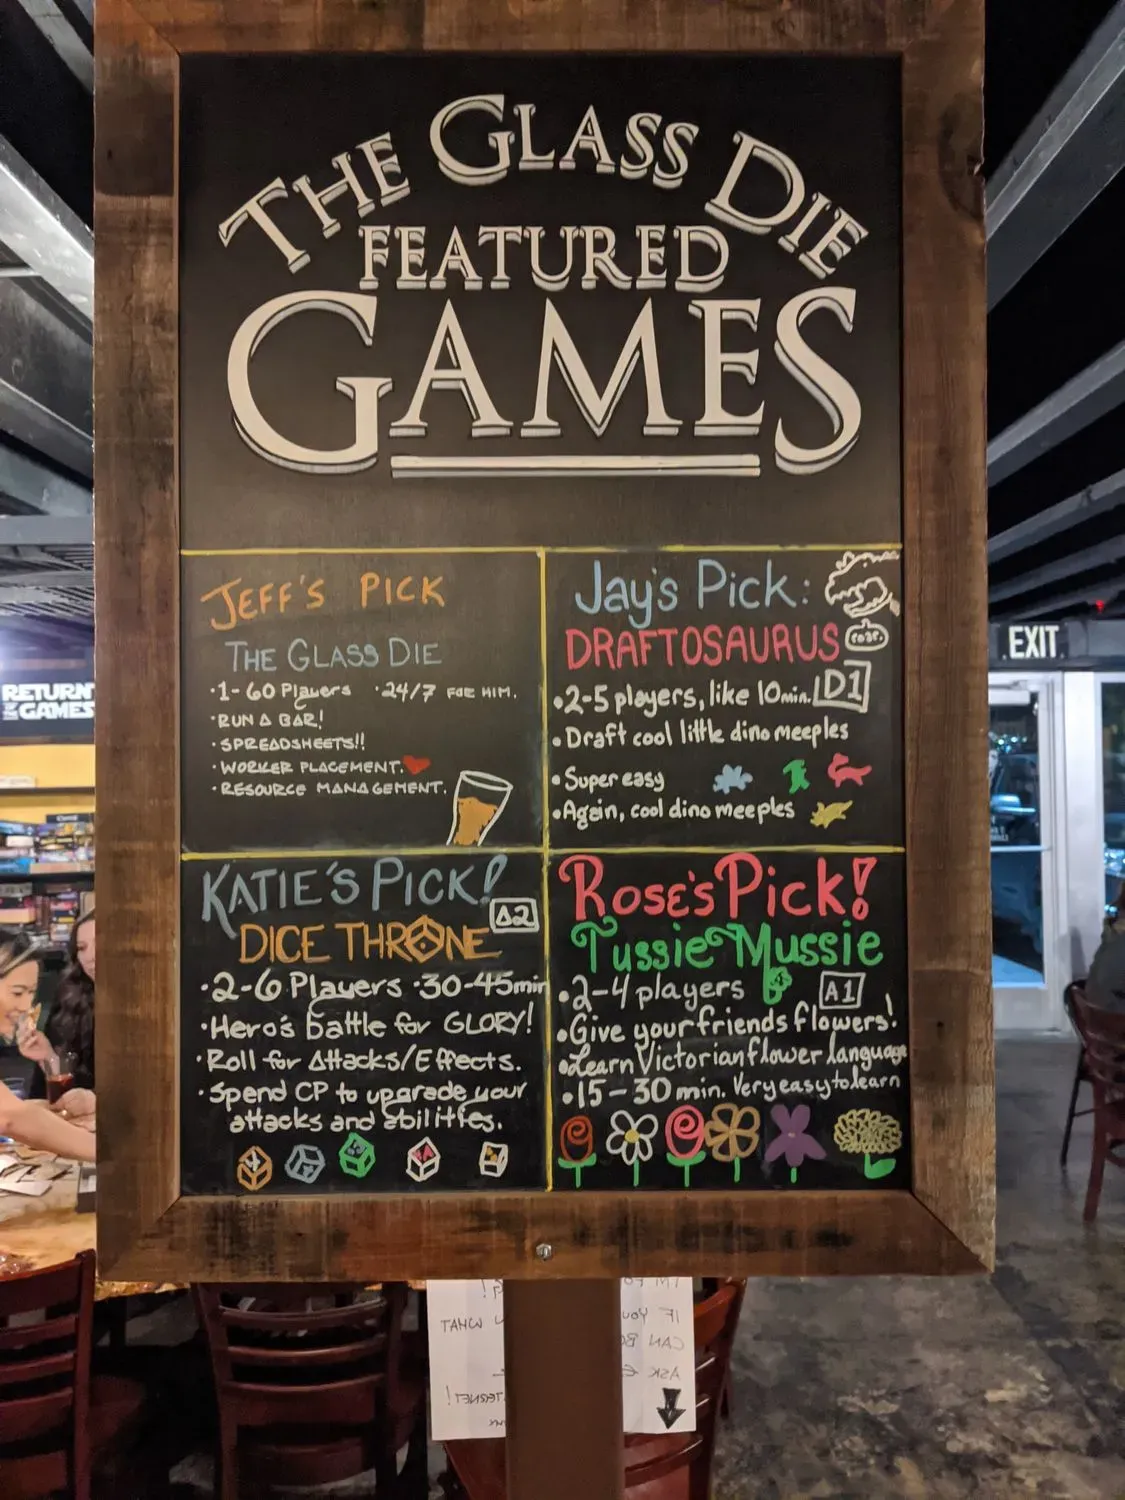 THE GLASS DIE
FEATURED
GAMES
JEFF'S PICK
THE GLASS DIE
·1-60 Players ·24/7 FOR HIM.
·RUN A BAR!
·SPREADSHEETS!!
·WORKER PLACEMENT.
·RESOURCE MANAGEMENT.
Jay's Pick:
DRAFTOSAURUS
roar.
•2-5 players, like 10min. D1
•Draft cool little dino meeples
•Super easy
•Again, cool dino meeples
KATIE'S PICK!
A2
DICE THRONE
·2-6 Players ·30-45min
·Hero's battle for GLORY!
·Roll for Attacks/Effects.
·Spend CP to upgrade your
attacks and abilities.
Rose's Pick!
Tussie Mussie
•2-4 players A1
•Give your friends flowers!
•Learn Victorian flower language
•15-30 min. Very easy to learn
EXIT
RETURN
GAMES
WHAT
IF YOU
CAN
ASK